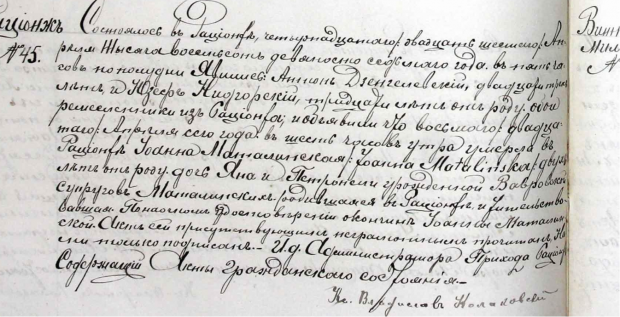 Раціонжъ
№45.
Состоялось въ Раціонжѣ, четырнадцатаго / двадцать шестаго / Ап-
рѣля тысяча восемьсотъ девяносто седьмаго года, въ пять ча-
совъ по полудни. Явились Антонъ Дзенгелевскій, двадцати трехъ
лѣтъ и Іосифъ Нидгорскій, тридцати лѣтъ отъ роду, оба
ремесленники изъ Раціонжа, и объявили что восьмаго / двадца-
таго / Апрѣля сего года въ шесть часовъ утра умерла въ
Раціонжѣ Іоанна Маталинская / Joanna Matalińska / двухъ
лѣтъ отъ роду, дочь Яна и Петронели урожденной
супруговъ Маталинскихъ, родившаяся въ Раціонжѣ и жительство-
вавшая. По наочномъ удостовѣреніи о кончинѣ Іоанны Маталин-
ской. Актъ сей присутствующимъ неграмотнымъ прочитанъ, На-
ми только подписанъ. И. д. Администратора Прихода
Содержащій Акты Гражданскаго состоянія
Кс.
Винн